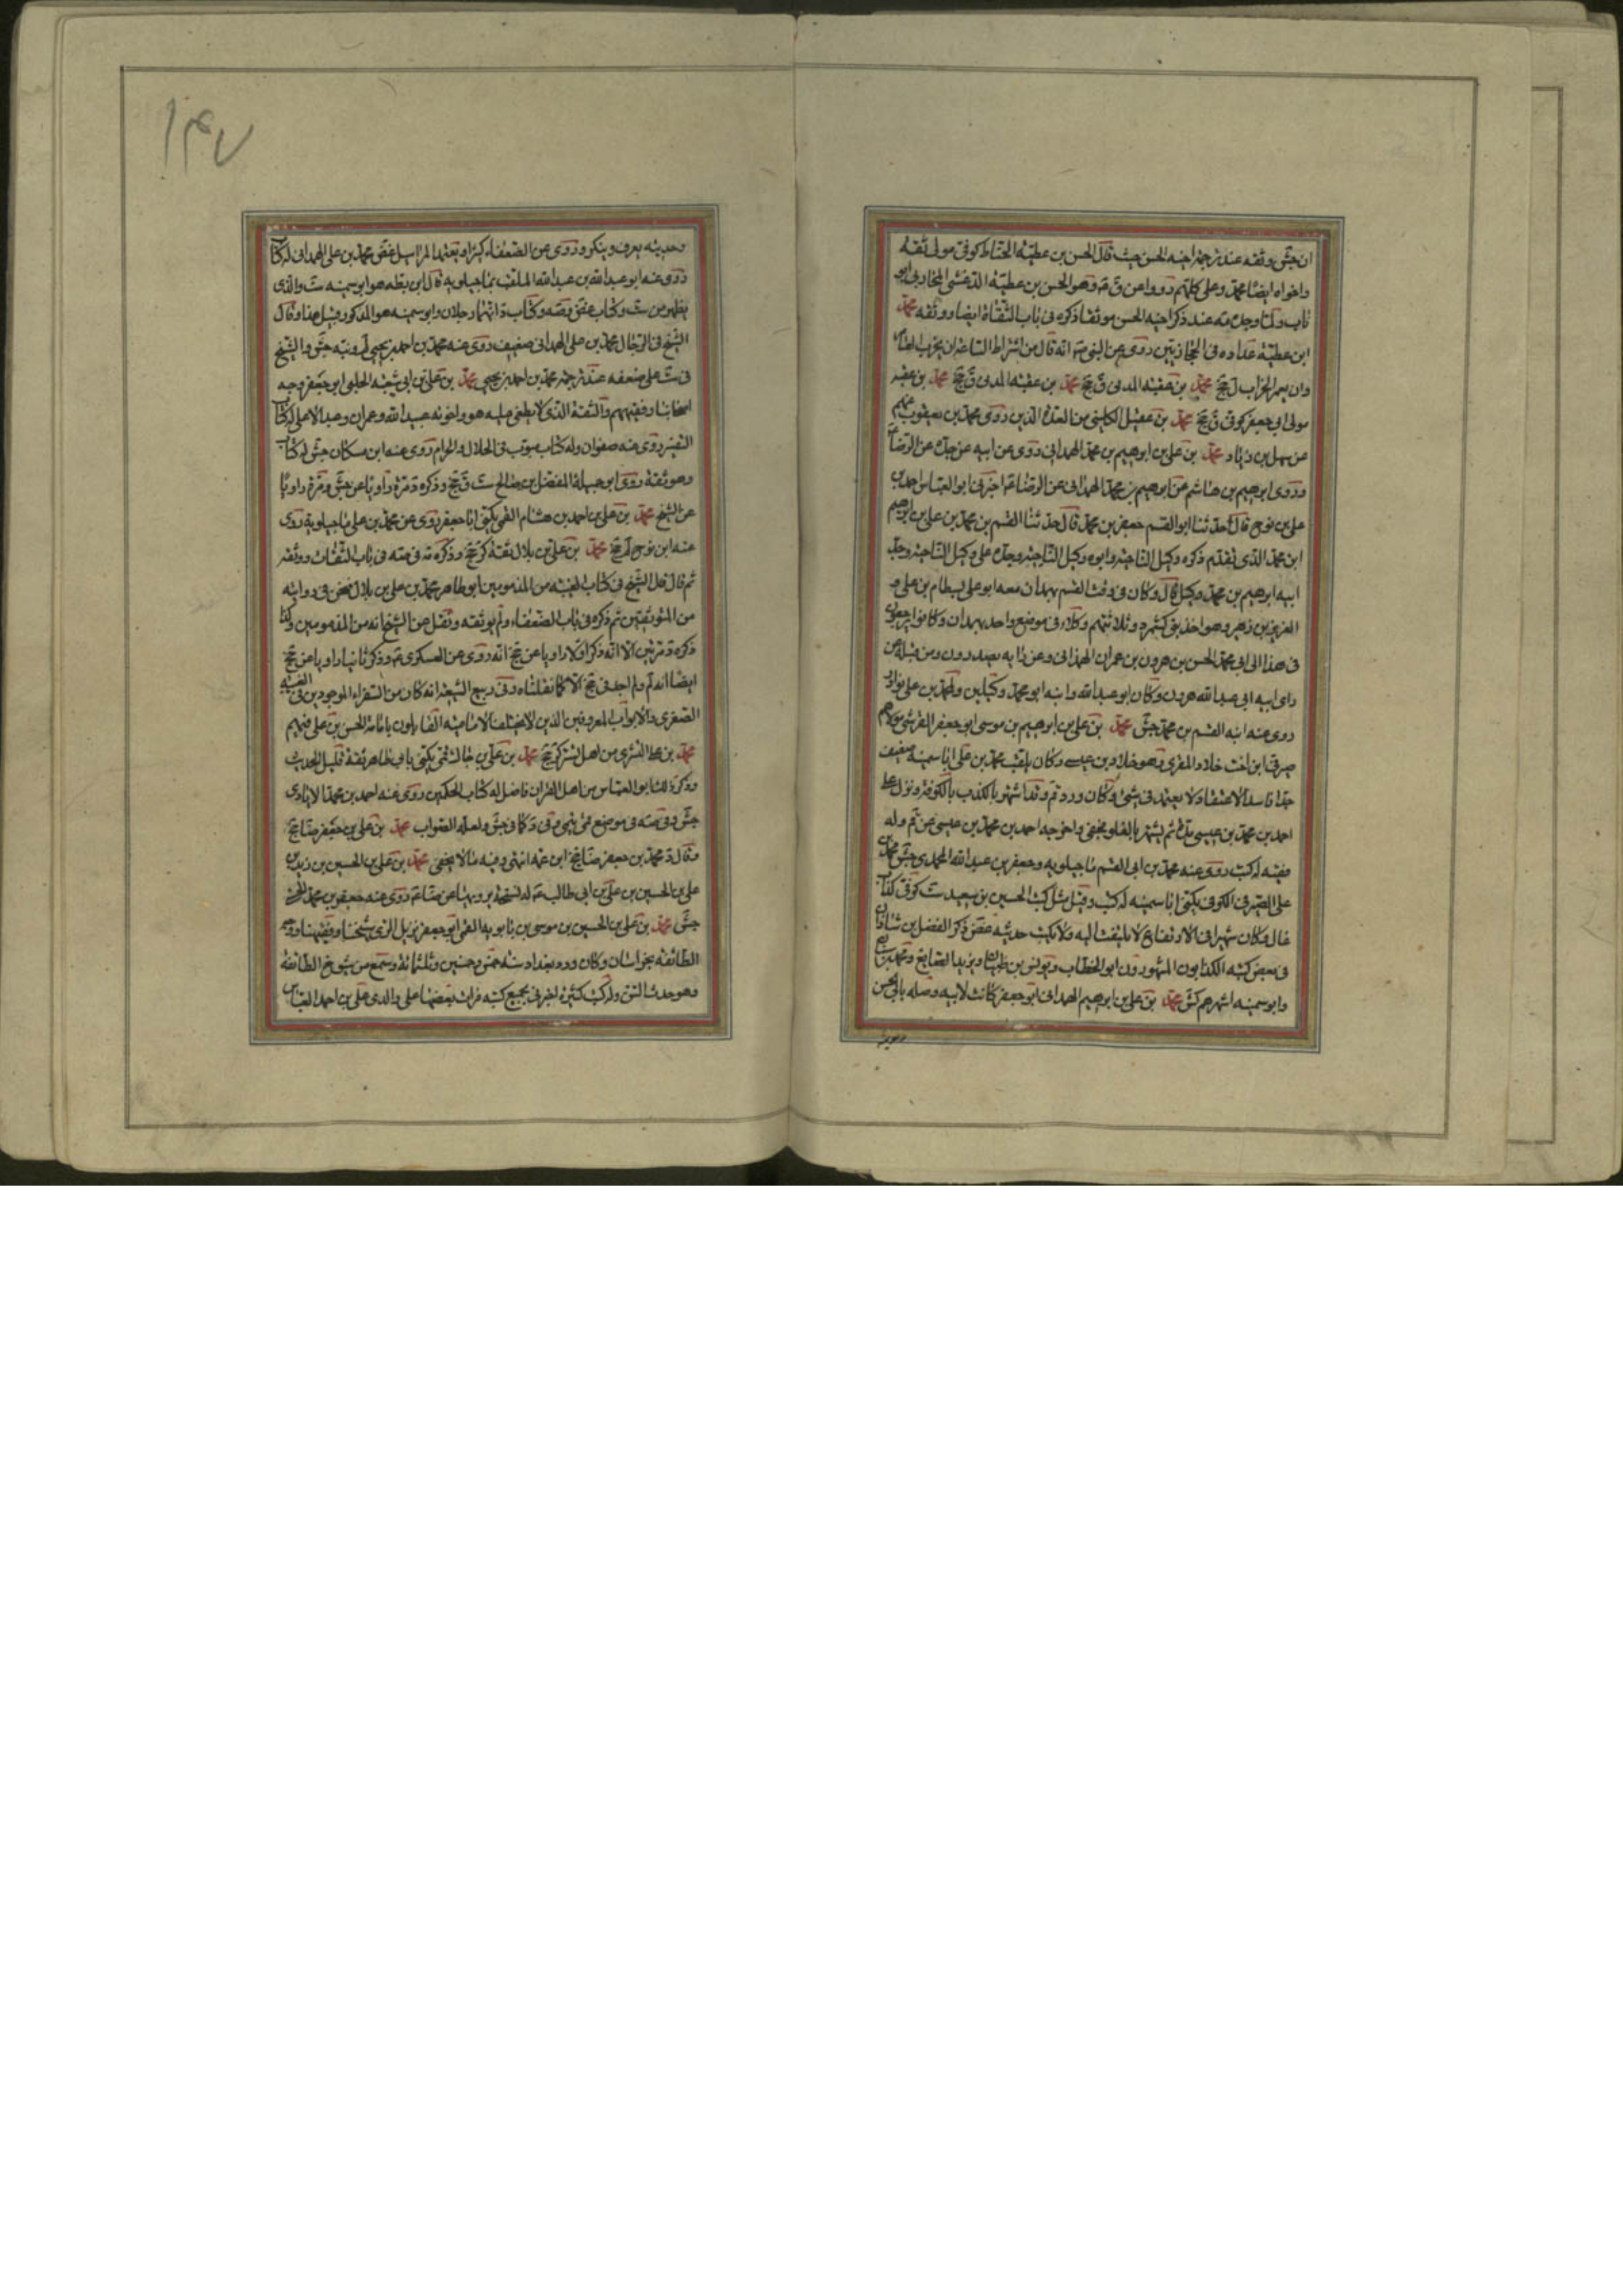 ان جش وثقه عند ترجمة اخيه الحسن حيث قال الحسن بن عطية الحناط كوفى مولى ثقة
واخواه ايضا محمد وعلى كلهم رووا عن ق ع وهو الحسن بن عطية الدغشى المحاربى ابو
ناب ولما وجد مه عند ذكر اخيه الحسن موثقا ذكره فى باب الثقاة ايضا ووثقه محمد
ابن عطية عداده فى روى عن النبى ص انه قال من اشراط الساعة ان يخرب العمار
وان يعمر الخراب ل جخ محمد بن عقبة المدنى ق جخ محمد بن عقبة المدنى ق جخ محمد بن عقبة
مولى ابى جعفر كوفى ق جخ محمد بن عقيل الكلينى من العدة الذين روى محمد بن يعقوب عنهم
عن سهل بن زياد محمد بن على بن ابرهيم بن محمد الهمدانى روى عن ابيه عن جده عن الرضا ع
وروى ابرهيم بن هاشم عن ابرهيم بن محمد الهمدانى عن الرضا ع اخبرنى ابو العباس احمد بن
على بن نوح قال حدثنا ابو القسم جعفر بن محمد قال حدثنا القسم بن محمد بن على بن ابرهيم
ابن محمد الذى تقدم ذكره وكيل الناحية وابوه وكيل الناحية وجده على وكيل الناحية وجد
ابيه ابرهيم بن محمد وكيل قال وكان فى وقت القسم بهمدان معه ابو على بسطام بن على و
العزيز بن زهير وهو احد بنى كشمرد وثلاثتهم وكلاء فى موضع واحد بهمدان وكانوا يرجعون
فى هذا الى ابى محمد الحسن بن هرون بن عمران الهمدانى وعن رايه يصدرون ومن قبله عن
راى ابيه ابى عبد الله هرون وكان ابو عبد الله وابنه ابو محمد وكيلين ولمحمد بن على نوادر
روى عنه ابنه القسم بن محمد جش محمد بن على بن ابرهيم بن موسى ابو جعفر القرشى مولاهم
صيرفى ابن اخت خلاد المقرى وهو خلاد بن عيسى وكان يلقب محمد بن على ابا سمينة ضعيف
جدا فاسد الاعتقاد لا يعتمد فى شئ وكان ورد قم وقد اشتهر بالكذب بالكوفة ونزل على
احمد بن محمد بن عيسى مدة ثم تشهر بالغلو فجفى واخرجه احمد بن محمد بن عيسى عن قم وله
له كتب روى عنه محمد بن ابى القسم ماجيلويه وجعفر بن عبد الله المحمدى جش محمد بن
على الصيرفى الكوفى يكنى ابا سمينة له كتب وقيل مثل كتب الحسين بن سعيد ست كوفى كذاب
غال وكان شهيرا فى الارتفاع لا يلتفت اليه ولا يكتب حديثه غض ذكر الفضل بن شاذان
فى بعض كتبه الكذابون المشهورون ابو الخطاب ويونس بن ظبيان ويزيد الصايغ ومحمد بن سنان
وابو سمينة اشهرهم كش محمد بن على بن ابرهيم الهمدانى ابو جعفر كانت لابيه وصلة بابى الحسن
وحديثه يعرف وينكر ويروى عن الضعفاء كثيرا ويعتمد المراسيل غض محمد بن على الهمدانى له كتاب
روى عنه ابو عبد الله بن عبد الله الملقب بماجيلويه قال ابن بطة هو ابو سمينة ست والذى
يظهر من ست وكتاب غض وصه وكتاب د انهما رجلان وابو سمينة هو المذكور قبيل هذا وقال
الشيخ فى الرجال محمد بن على الهمدانى ضعيف روى عنه محمد بن احمد بن يحيى لم وتبه جش والشيخ
فى ست على ضعفه عند ترجمة محمد بن احمد بن يحيى محمد بن على بن ابى شعبة الحلبى ابو جعفر وجه
اصحابنا وفقيههم والثقة الذى لا يطعن عليه هو واخوته عبيد الله وعمران وعبد الاعلى له كتاب
التفسير روى عنه صفوان وله كتاب مبوب فى الحلال والحرام روى عنه ابن مسكان جش له كتاب
وهو ثقة روى ابو جميلة المفضل بن صالح ست ق جخ وذكره د مرة راويا عن جش ومرة راويا
عن الشيخ محمد بن على بن احمد بن هشام القمى يكنى ابا جعفر روى عن محمد بن على ماجيلويه روى
عنه ابن نوح لم جخ محمد بن على بن بلال ثقة كر جخ وذكره مه فى صه فى باب الثقات ووثقه
ثم قال قال الشيخ فى كتاب الغيبة من المذمومين ابو طاهر محمد بن على بن بلال فنحن فى روايته
من المتوقفين ثم ذكره فى باب الضعفاء ولم يوثقه ونقل عن الشيخ انه من المذمومين وكذا
ذكره د مرتين الا انه ذكر اولا راويا عن جخ انه روى عن العسكرى ع وذكر ثانيا راويا عن جخ
ايضا انه لم ولم اجد فى جخ الا كما نقلناه وفى ربيع الشيعة انه كان من السفراء الموجودين فى الغيبة
الصغرى والابواب المعروفين الذين لا يختلف الامامية القايلون بامامة الحسن بن على فيهم
محمد بن على التسترى من اهل تستر كر جخ محمد بن على بن جاك قمى يكنى بابى طاهر ثقة قليل الحديث
وذكر ذلك ابو العباس من اهل القران فاضل له كتاب الحكمين روى عنه احمد بن محمد الايادى
جش وفى صه فى موضع قمى وكما فى جش ولعله الصواب محمد بن على بن جعفر ضا جخ
وقال د محمد بن جعفر ضا جخ ابن عمه انتهى وفيه ما لا يخفى محمد بن على بن الحسين بن زيد بن
على بن الحسين بن على بن ابى طالب ع له نسخة يرويها عن ضا ع روى عنه جعفر بن محمد
جش محمد بن على بن الحسين بن موسى بن بابويه القمى ابو جعفر نزيل الرى شيخنا وفقيهنا ووجه
الطائفة بخراسان وكان ورد بغداد سنة خمس وخمسين وثلثمائة وسمع من شيوخ الطائفة
وهو حدث السن وله كتب كثيرة اخبرنى بجميع كتبه قرات بعضها على والدى على بن احمد العباس